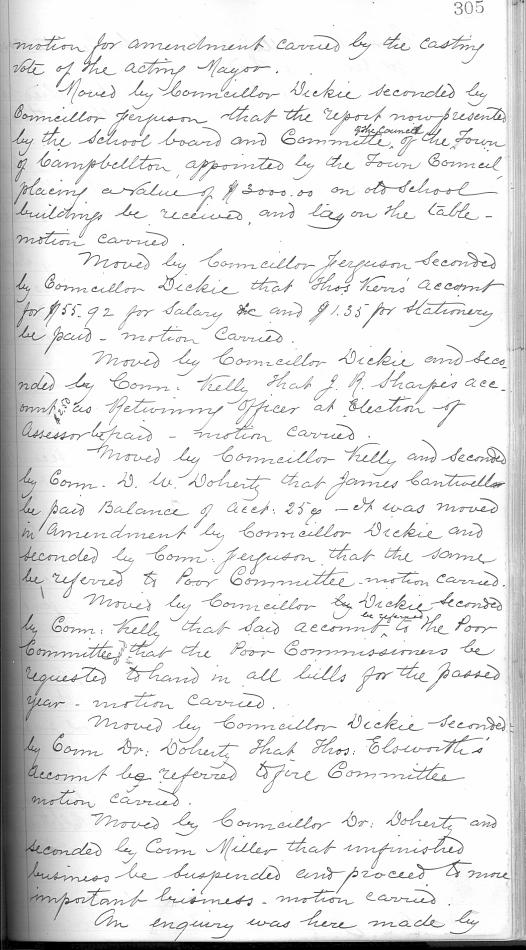 305
motion for amendment carried by the casting
vote of the acting Mayor.
Moved by Councillor Dickie seconded by
Councillor Ferguson that the report now presented
by the School board and Committe, of the Council of the Town
of Campbellton, appointed by the Town Council,
placing a value of $3000.00 on old School
buildings be received, and lay on the table -
motion carried.
Moved by Councillor Ferguson seconded
by Councillor Dickie that Thos Kerr's account
for $55.92 for Salary &c and $1.35 for Stationery
be paid - motion carried.
Moved by Councillor Dickie and seco-
nded by Coun: Kelly that J. R. Sharpe's acc-
ount as Retivning Officer at Election of
Assessor be paid - motion carried.
Moved by Councillor Kelly and seconded
by Coun. D. W. Doherty that James Cantwell
be paid Balance of acct: 25¢ - It was moved
in amendment by Councillor Dickie and
seconded by Coun: Ferguson that the same
be referred to Poor Committee - motion carried.
Moved by Councillor by Dickie seconded
by Coun: Kelly that said account be referred to the Poor
Committee, that the Poor Commissioners be
requested to hand in all bills for the passed
year - motion carried.
Moved by Councillor Dickie seconded
by Coun Dr: Doherty that Thos: Elsworth's
account be referred to fire Committee
motion carried.
Moved by Councillor Dr: Doherty and
seconded by Coun Miller that unfinished
business be suspended and proceed to more
important business - motion carried.
An enquiry was here made by